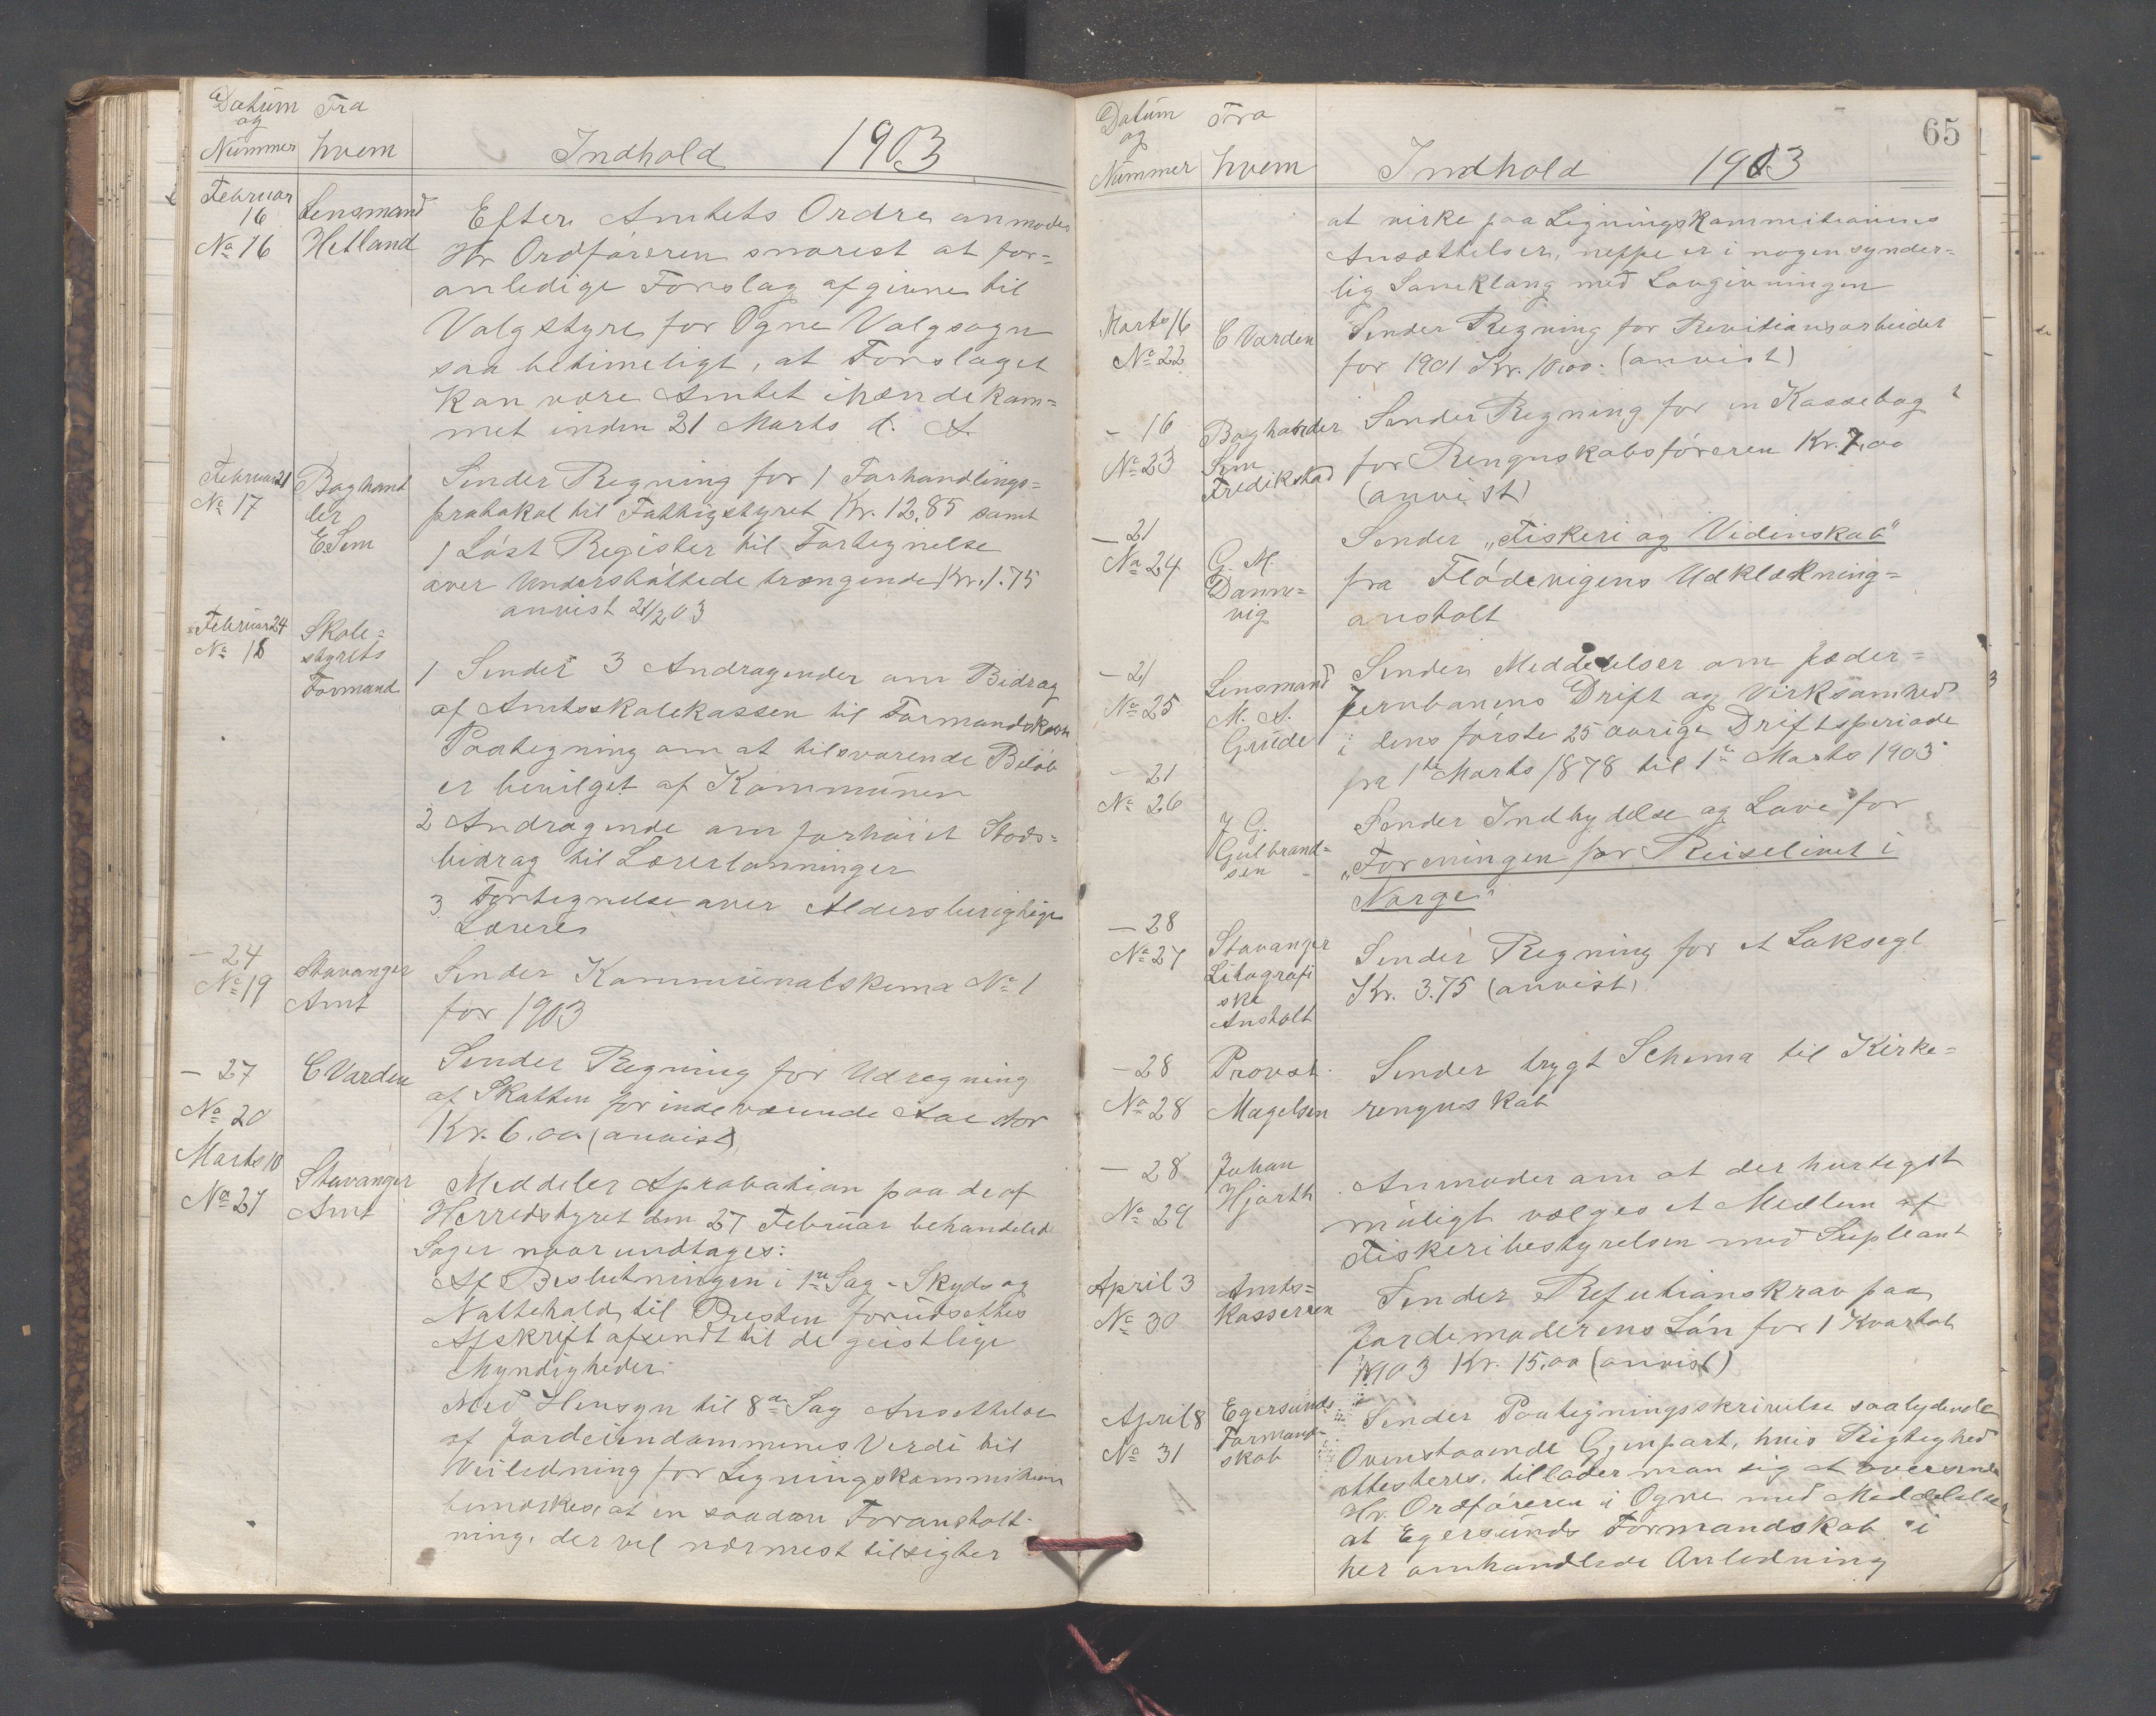 Datum Fra
og
Nummer hvem Indhold 1903
Februar 16 No 16
Lensmand Hetland
Efter Amtets Ordre anmodes
Hr Ordføreren snarest at for=
anledige Forslag afgivne til
Valgstyre for Ogne Valgsogn
saa betimeligt, at Forslaget
kan være Amtet ihændekom=
met inden 21 Marts d. A.
Februar 21 No 17
Boghandler E. Sem
Sender Regning for 1 Forhandlings=
protokol til Fattigstyret Kr. 12,85 samt
1 Löst Register til Fortegnelse
over Understöttede trængende Kr. 1.75
anvist 21/2 03
Februar 24 No 18
Skole=
styrets
Formand
1 Sender 3 Andragender om Bidrag
af Amtsskolekassen til Formandskab
Paategning om at tilsvarende Belöb
er bevilget af Kommunen
2 Andragende om forhöiet Stads=
bidrag til Lærerlønninger
3 Fortegnelse over Aldersberigtige
Lærere
— 24 No 19
Stavanger Amt
Sender Kommunalskema No 1
for 1903
— 27 No 20
C Varden
Sender Regning for Udregning
af Skatten for indeværende Aar stor
Kr. 6.00 (anvist)
Marts 10 No 21
Stavanger Amt
Meddeler Aprobation paa de af
Herredstyret den 27 Februar behandlede
Sager naar undtages:
Af Beslutningen i 1ste Sag - Skyds og
Nattehold til Presten forudsættes
Afskrift afsendt til de geistlige
Myndigheder.
Med Hensyn til 8de Sag Ansettelse
af Jordeiendommenes Verdi til
Veiledning for Ligningskommitionen
bemærkes, at en saadan Foranstalt=
ning, der vel nærmest tilsigter
65
Datum Fra
og
Nummer hvem Indhold 1903
at virke paa Ligningskommitionens
Ansættelser, neppe er i nogen synder=
lig Samklang med Lovgivningen
Marts 16 No 22
C Varden
Sender Regning for Revitionsarbeider
for 1901 Kr. 10,00. (anvist)
— 16 No 23
Boghander
Sem
Fredikstad
Sender Regning for en Kassebog
for Rengnskabsföreren Kr. 7,00
(anvist)
— 21 No 24
G. M.
Danne=
vig
Sender „Fiskeri og Videnskab"
fra Flödevigens Udklækning=
anstalt
— 21 No 25
Lensmand
M. A.
Grude
Sender Meddelelser om Jæder=
Jernbanens Drift og Virksomhed
i dens förste 25 aarige Driftsperiode
fra 1te Marts 1878 til 1te Marts 1903
— 21 No 26
J G.
Gulbrand=
sen
Sender Indbydelse og Love for
„Foreningen for Reiselivet i
Norge"
— 28 No 27
Stavanger
Litografi
ske
Anstalt
Sender Regning for et Laksegl
Kr. 3.75 (anvist)
— 28 No 28
Provst
Magelsen
Sender trygt Schema til Kirke=
rengnskab
— 28 No 29
Johan
Hjorth
Anmoder om at der hurtigst
muligt vælges et Medlem af
Fiskeribestyrelsen med Supleant
April 3 No 30
Amts=
kasseren
Sender Refutionskrav paa
Jordemoderens Lön for 1 Kvartal
1903 Kr. 15.00 (anvist)
April 8 No 31
Egersunds
Formand=
skab
Sender Paategningsskrivelse saalydende
Ovenstaaende Gjenpart, hvis Rigtighed
attesteres, tillader man sig at oversende
Hr. Ordföreren i Ogne med Meddelelse
at Egersunds Formandskab i
her omhandlede Anledning